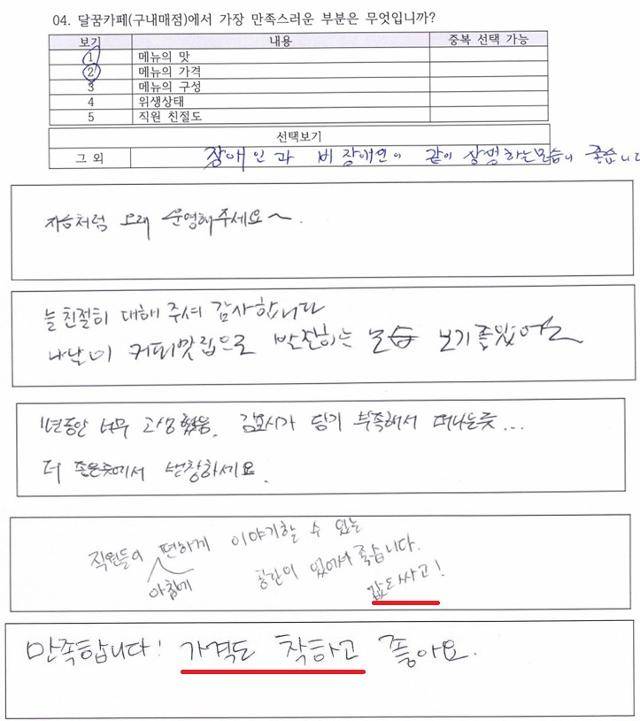 04. 달꿈카페(구내매점)에서 가장 만족스러운 부분은 무엇입니까?
보기 내용 중복 선택 가능
1 메뉴의 맛
2 메뉴의 가격
3 메뉴의 구성
4 위생상태
5 직원 친절도
선택보기
그 외 장애인과 비장애인이 같이 상생하는 모습이 좋습니다
지금처럼 오래 운영해주세요~.
늘 친절히 대해 주셔 감사합니다
나날이 커피맛집으로 발전하는 모습 보기좋았어요
1년동안 너무 고생했음. 부족해서 떠나는듯...
더 좋은곳에서 번창하세요.
직원들이 편하게 이야기할 수 있는
아침에 공간이 있어서 좋습니다.
값도 싸고!
만족합니다! 가격도 착하고 좋아요.